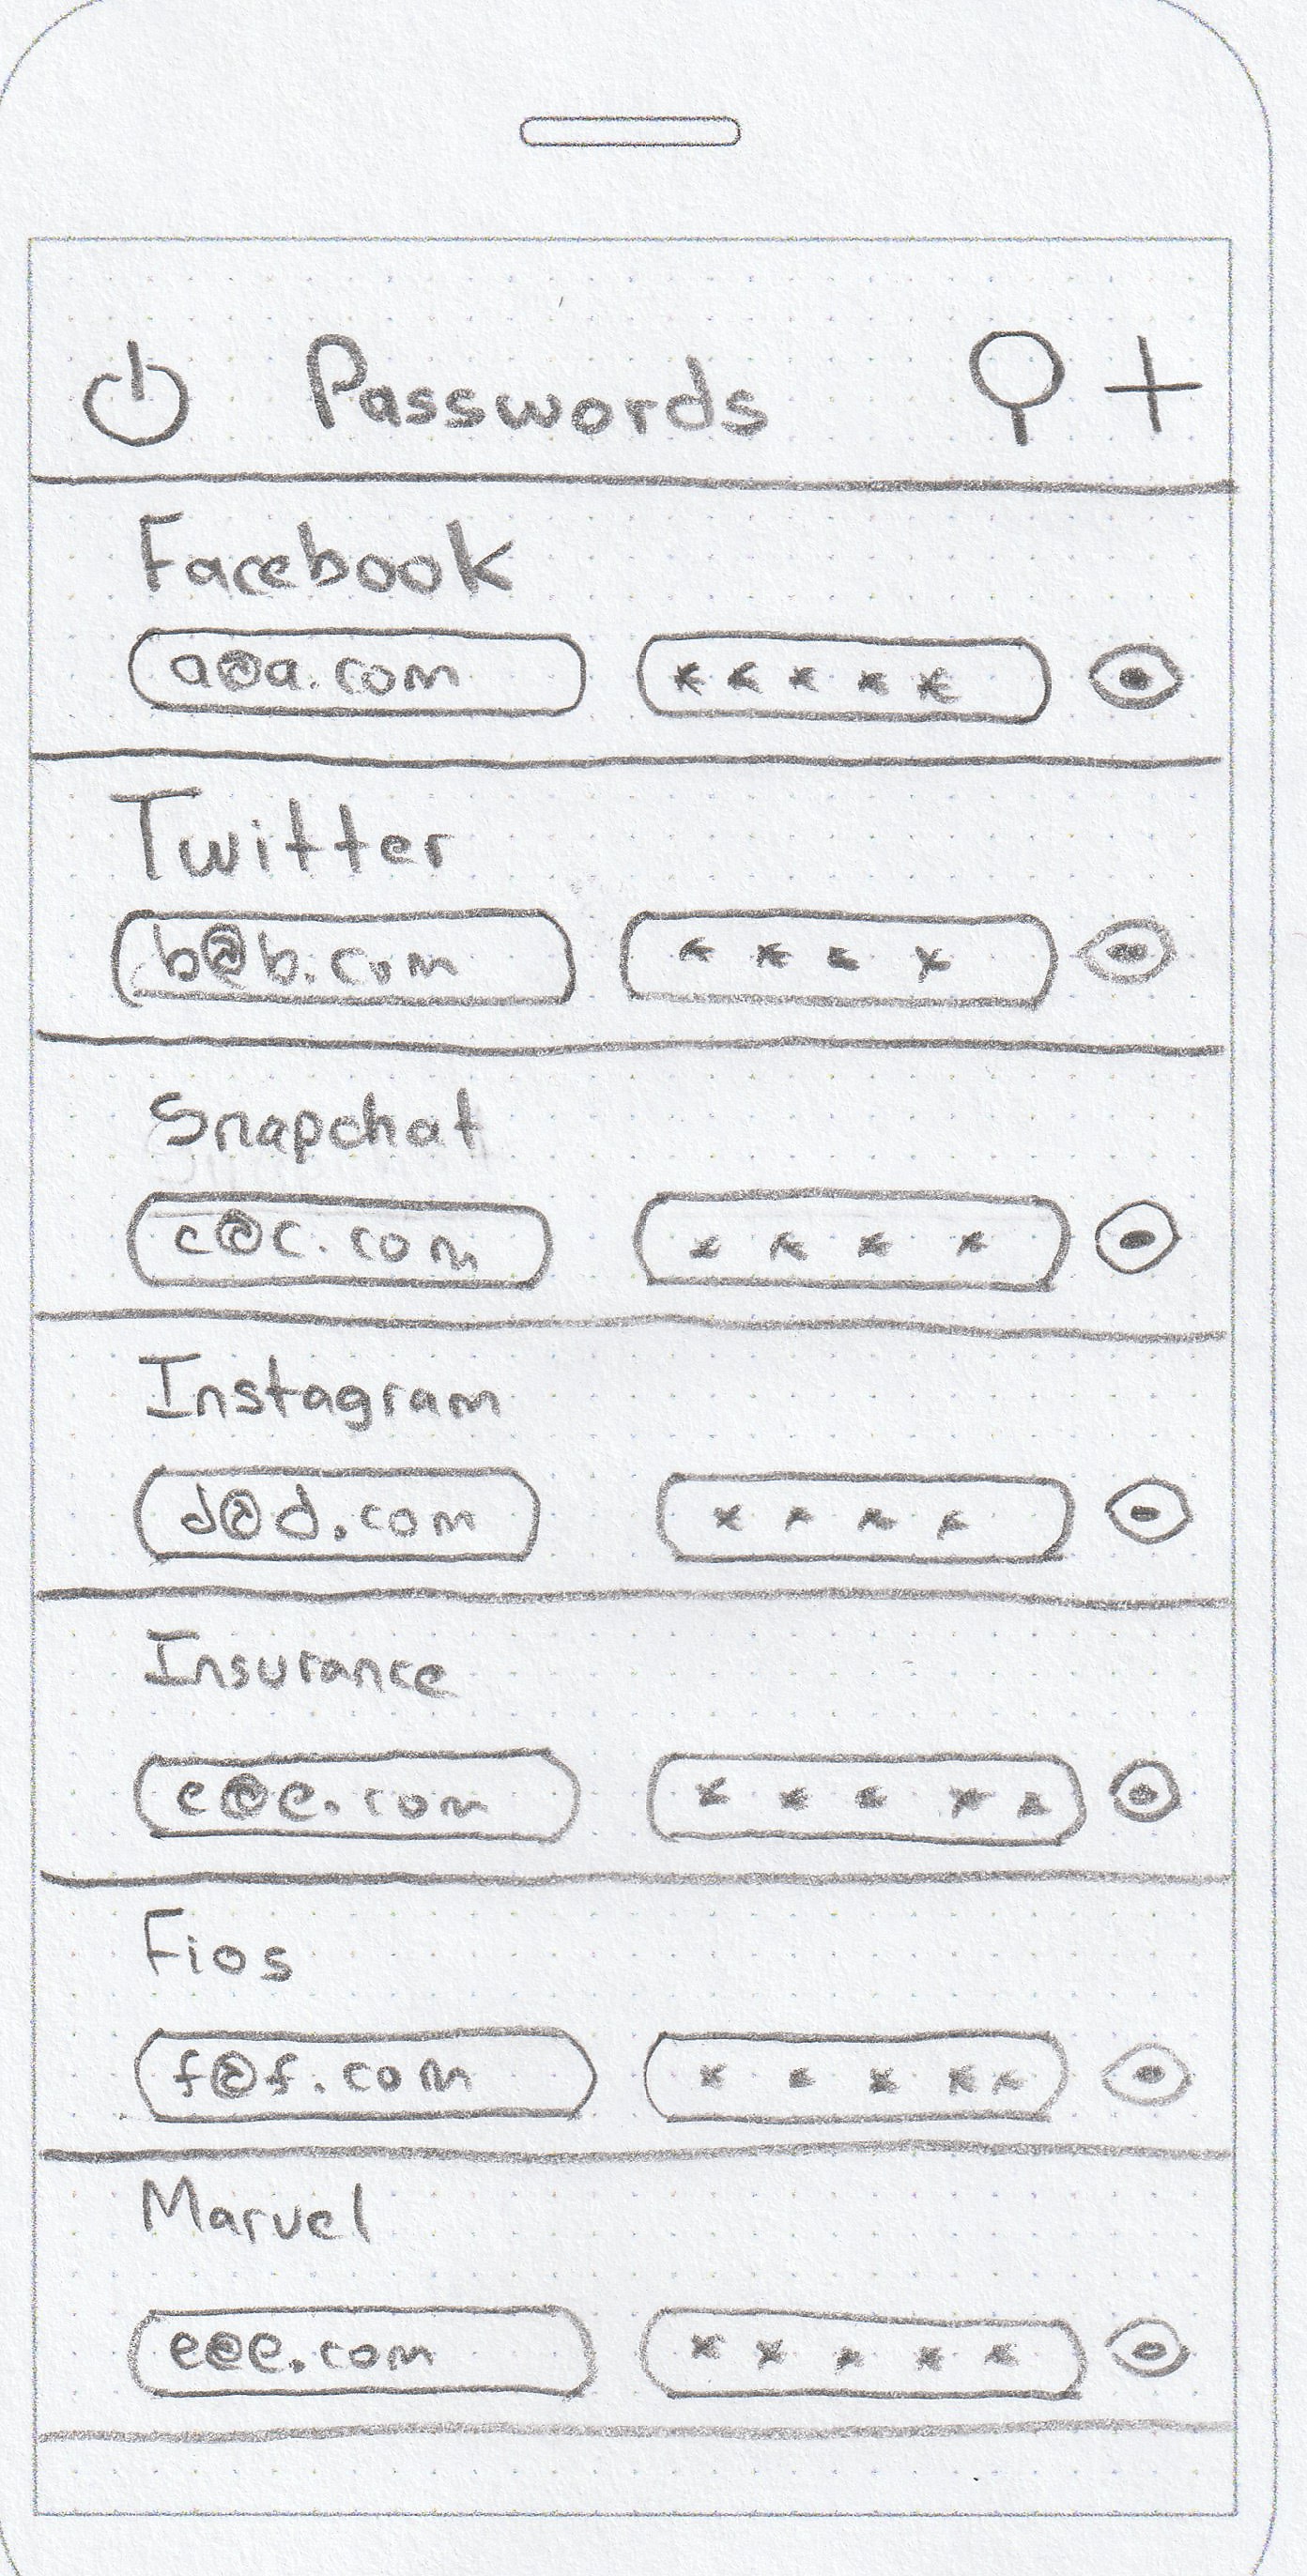 Passwords
Facebook
a@a.com * * * * *
Twitter
b@b.com * * * *
Snapchat
c@c.com * * * *
Instagram
d@d.com * * * *
Insurance
e@e.com * * * * *
Fios
f@f.com * * * * *
Marvel
e@e.com * * * * *